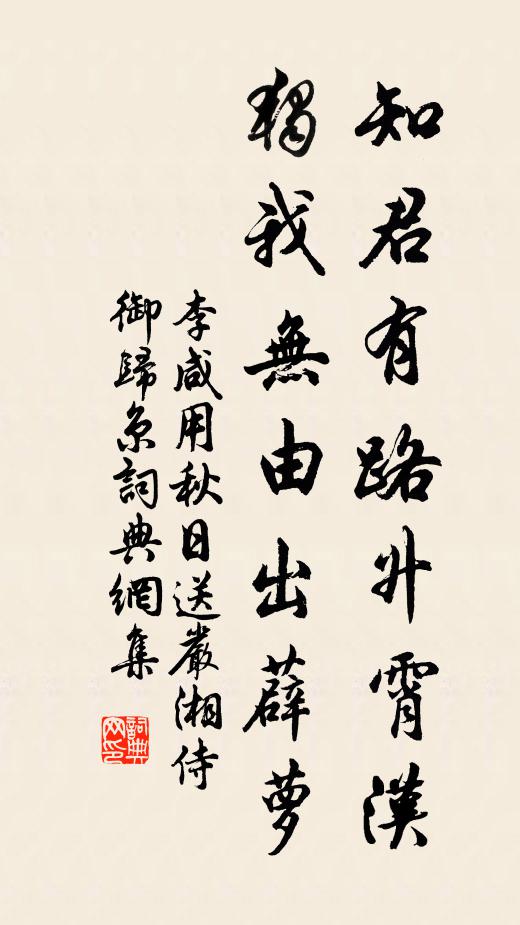 知君有路升霄漢
獨我無由出薜蘿
李咸用秋日送嚴湘侍
御歸京詞典網集
詞典
网印